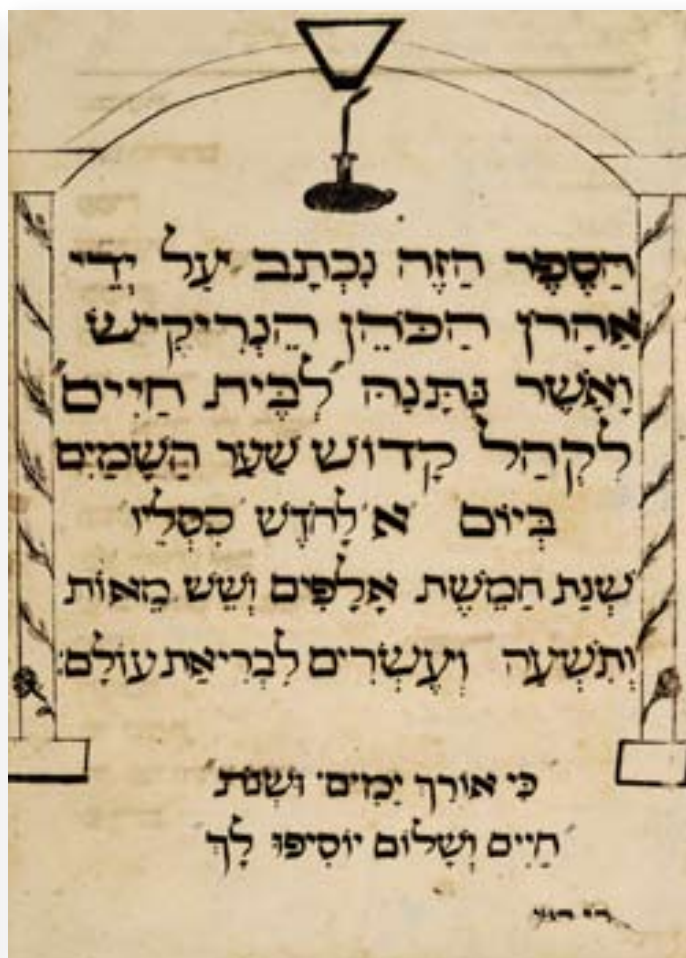 הַסֵפֶר הַזֶה נִכְתָב עַל יְדֵי
אַהֲרֹן הַכֹּהֵן הֶנְרִיקִיש
וַאֲשֶׁר נָתְנָה לְבֵית חַיִים
לִקְהַל קָדוֹש שַׁעַר הַשָׁמַיִם
בְּיוֹם א׳ לְחֹדֶש כִּסְלֵיו
שְׁנַת חֲמֵשֶׁת אֲלָפִים וְשֵׁש מֵאוֹת
וְתִשְׁעָה וְעֶשְׂרִים לִבְרִיאַת עוֹלָם:
כִּי אוֹרֶך יָמִים וּשְׁנֹת
חַיִים וְשָׁלוֹם יוֹסִיפוּ לָךְ